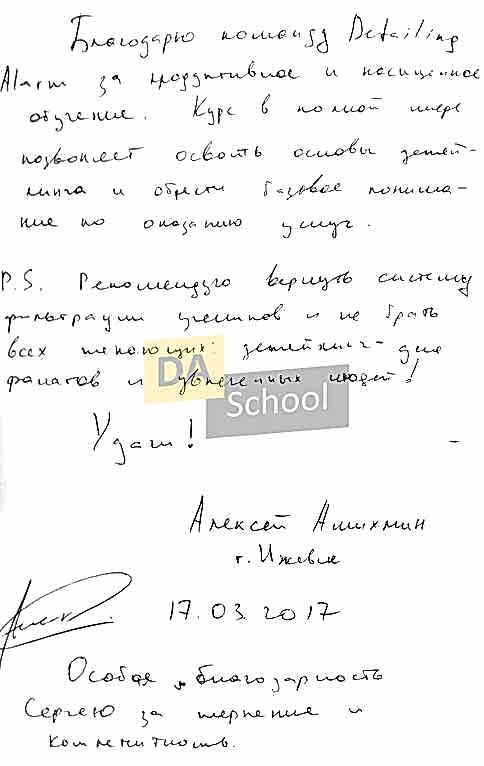 Благодарю команду Detailing
Alarm за продуктивное и насыщенное
обучение. Курс в полной мере
позволяет освоить основы детей-
линга и обрести базовое понима-
ние по оказанию услуг.
P.S. Рекомендую вернуть систему
фильтрации учеников и не брать
всех желающих: детейлинг - для
фанатов и увлеченных людей!
DA
School
Удачи!
Алексей Анихмин
г. Ижевск
17.03.2017
Особая благодарность
Сергею за терпение и
компетентность.